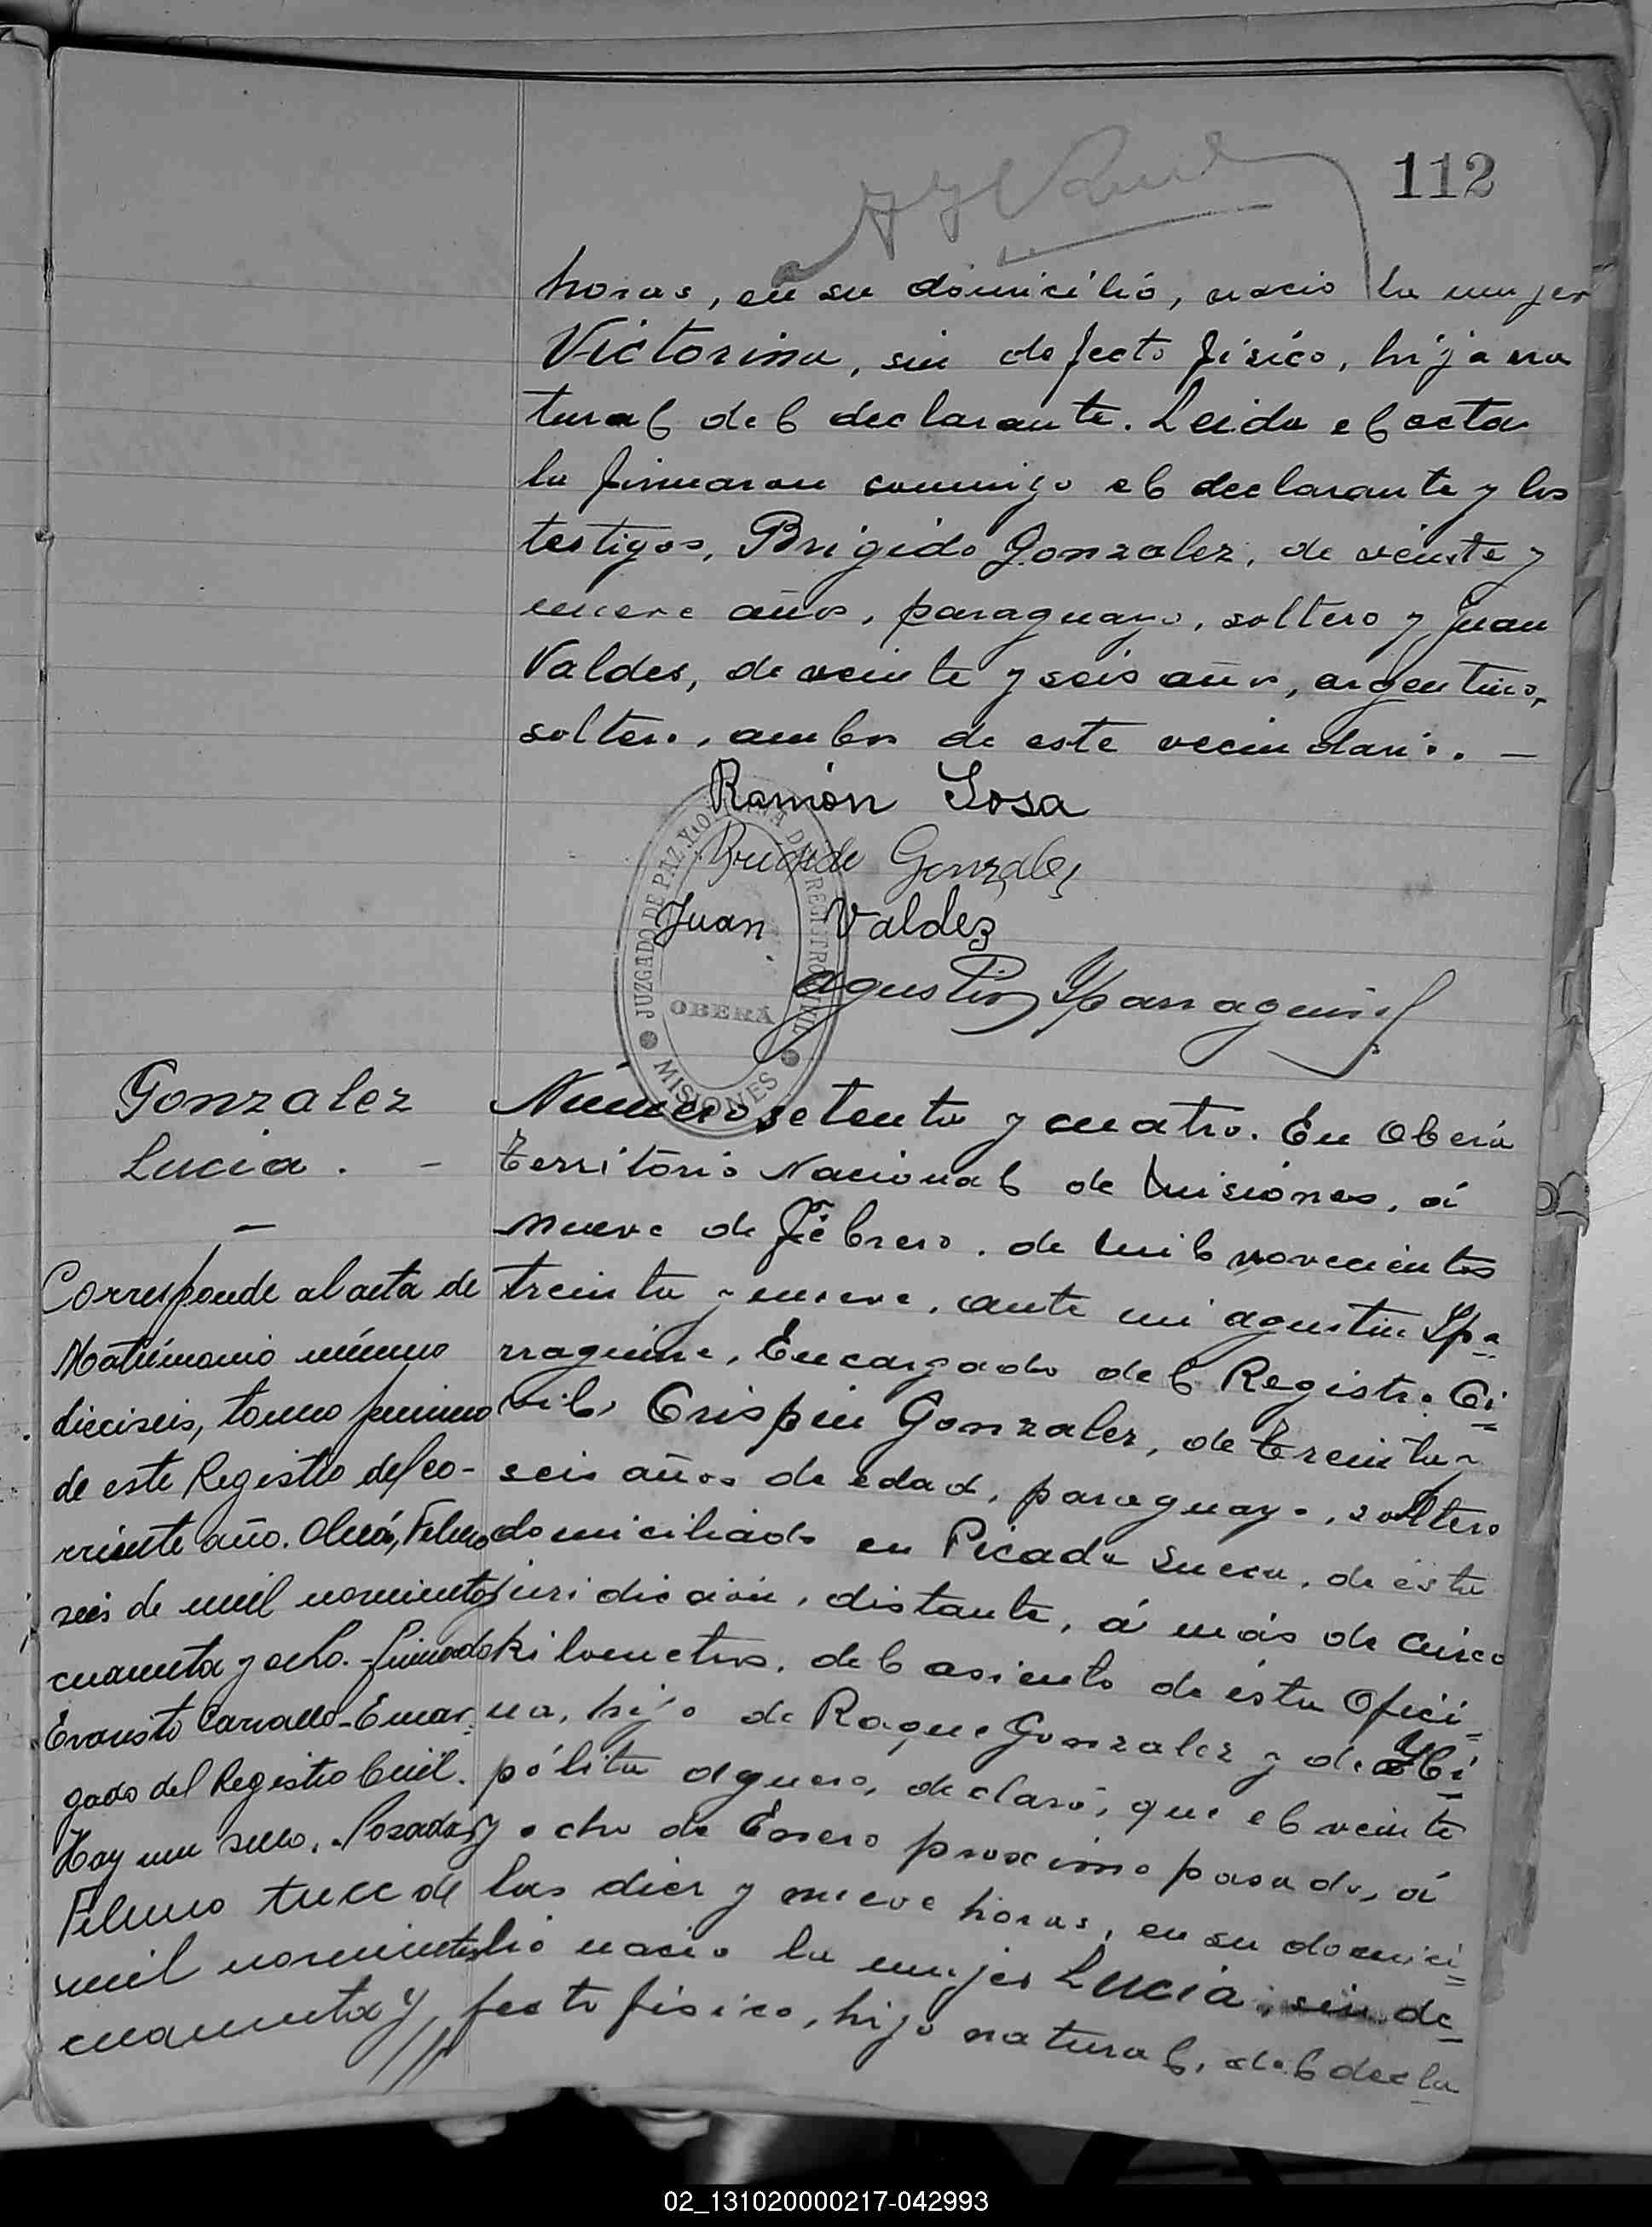 112
horas, en su domicilio, nacio la mujer
Victorina, sin defecto fisico, hija na
tural del declarante. Leida el acta
la firmaron conmigo el declarante y los
testigos, Brigido Gonzalez, de veinte y
nueve años, paraguayo, soltero y Juan
Valdes, de veinte y seis años, argentino,
soltero, ambos de este vecindario. —
Ramón Sosa
Gonzalez
Juan Valdez
Agustin Yparraguirre
JUZGADO DE PAZ Y OFICINA DE REGISTRO CIVIL
OBERÁ
MISIONES
Gonzalez
Lucia. -
—
Corresponde al acta de
Matrimonio número
dieciseis, tomo primero
de este Registro del co-
rriente año. Oberá, Febrero
seis de mil novecientos
cuarenta y ocho. - Firmado
Evaristo Carvallo - Encar-
gado del Registro Civil.
Hay un sello. Posadas,
Febrero trece de
mil novecientos
cuarenta y
Número setenta y cuatro. En Oberá
Territorio Nacional de Misiones, á
nueve de Febrero, de mil novecientos
treinta y nueve, ante mi Agustin Ypa-
rraguirre, Encargado del Registro Ci=
vil, Crispin Gonzalez, de treinta y
seis años de edad, paraguayo, soltero
domiciliado en Picada Sueca, de esta
juridicion, distante, á más de cinco
kilometros, del asiento de ésta Ofici=
na, hijo de Roque Gonzalez y de Ypi=
pólita Aguero, declaró, que el veinte
y ocho de Enero proximo pasado, á
las diez y nueve horas, en su domici=
lio nacio la mujer Lucia, sin de=
fecto fisico, hija natural, del decla=
02_131020000217-042993